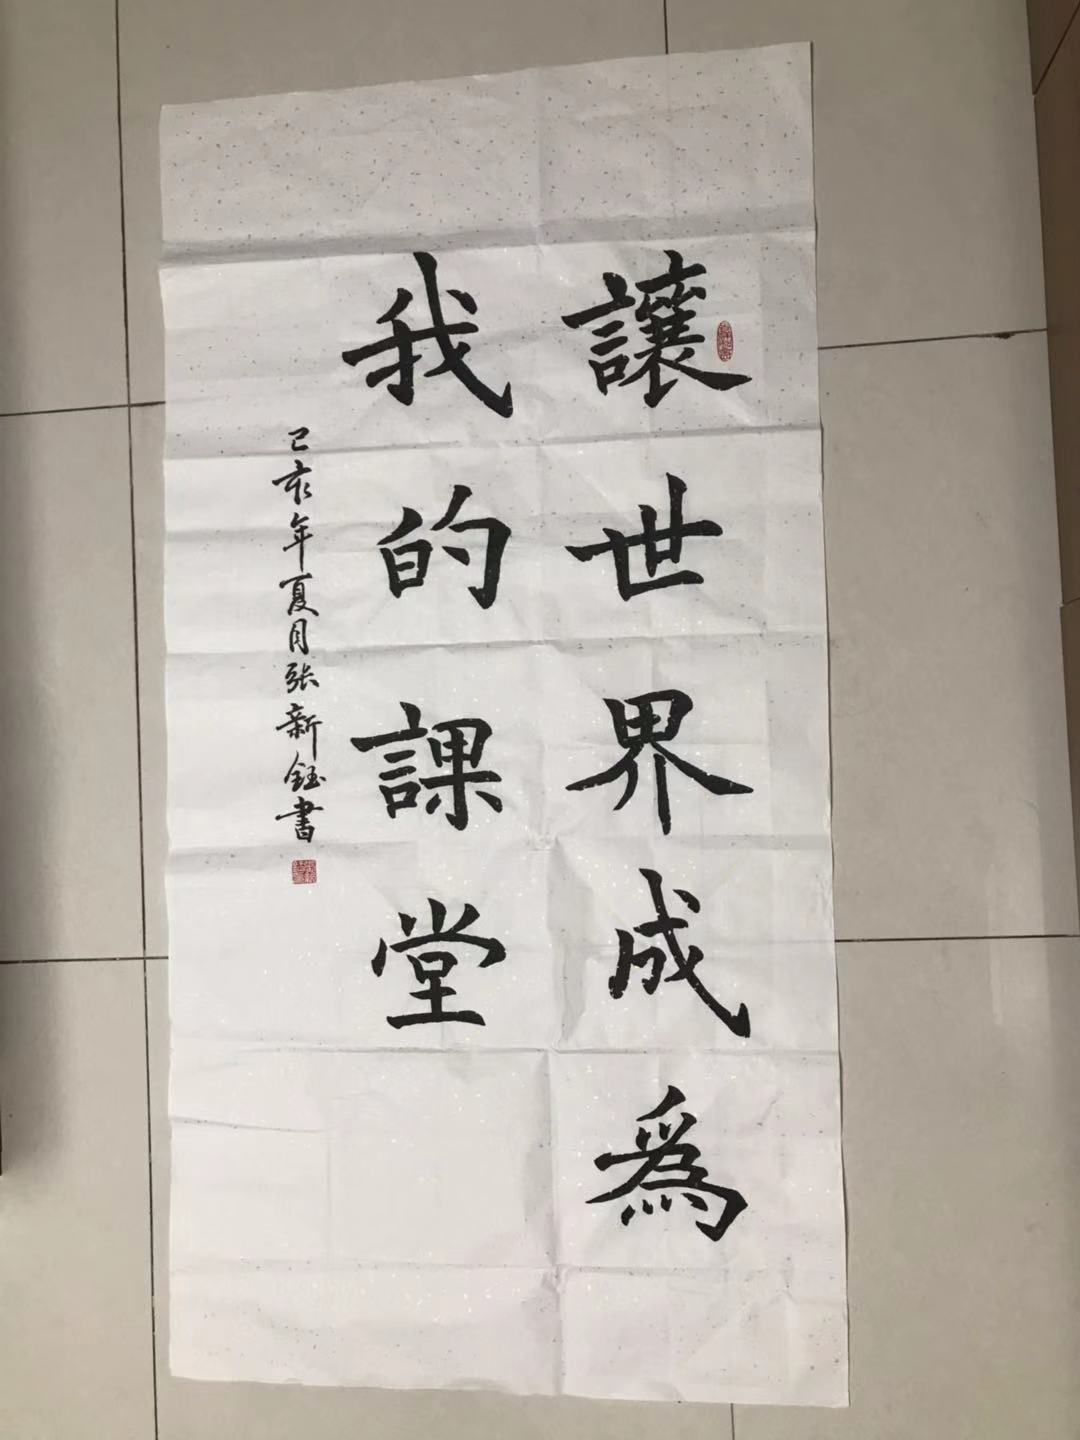 讓世界成為
我的課堂
己亥年夏月张新鈺書